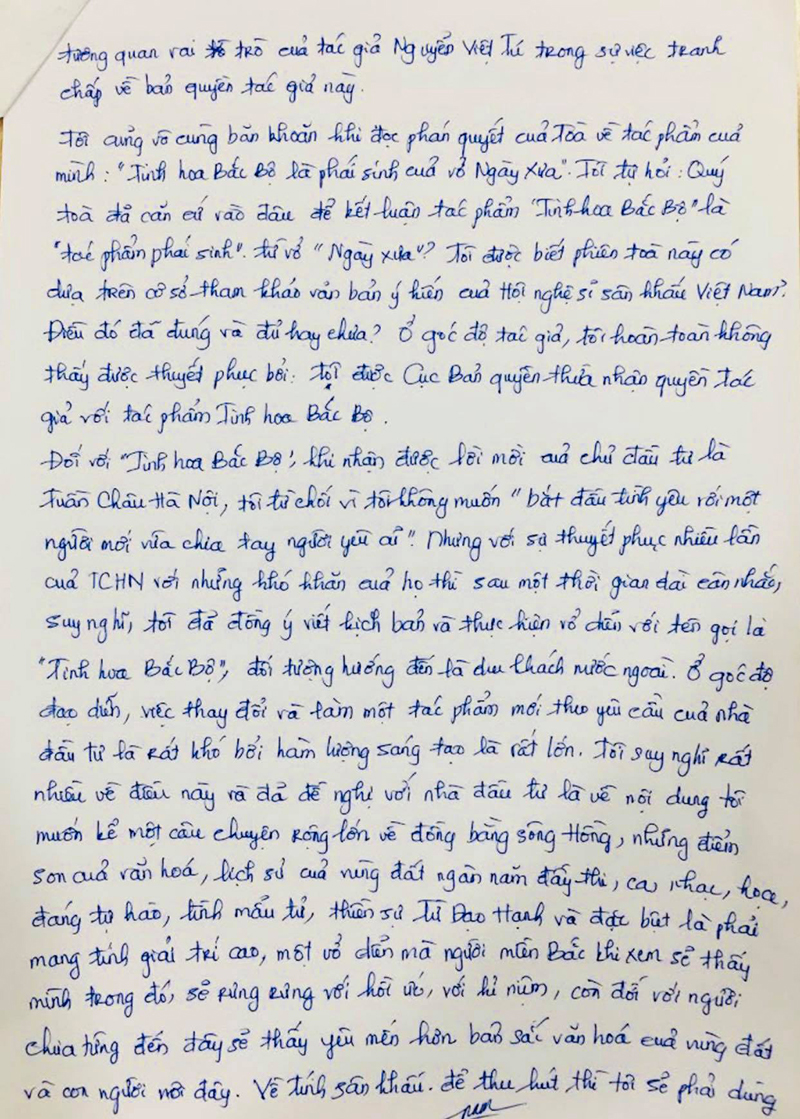 tương quan vai trò của tác giả Nguyễn Việt Tú trong sự việc tranh
chấp về bản quyền tác giả này.
Tôi cũng vô cùng băn khoăn khi đọc phán quyết của Toà về tác phẩm của
mình: "Tinh hoa Bắc Bộ là phái sinh của vở Ngày Xưa". Tôi tự hỏi: Quý
toà đã căn cứ vào đâu để kết luận tác phẩm "Tinh hoa Bắc Bộ" là
"tác phẩm phái sinh". từ vở "Ngày xưa"? Tôi được biết phiên toà này có
dựa trên cơ sở tham khảo văn bản ý kiến của Hội nghệ sĩ sân khấu Việt Nam?
Điều đó đã đúng và đủ hay chưa? Ở góc độ tác giả, tôi hoàn toàn không
thấy được thuyết phục bởi: tôi được Cục Bản quyền thừa nhận quyền tác
giả với tác phẩm Tinh hoa Bắc Bộ.
Đối với "Tinh hoa Bắc Bộ", khi nhận được lời mời của chủ đầu tư là
Tuần Châu Hà Nội, tôi từ chối vì tôi không muốn "bắt đầu tình yêu với một
người mới vừa chia tay người yêu cũ". Nhưng với sự thuyết phục nhiều lần
của TCHN với những khó khăn của họ thì sau một thời gian dài cân nhắc,
suy nghĩ, tôi đã đồng ý viết kịch bản và thực hiện vở diễn với tên gọi là
"Tinh hoa Bắc Bộ", đối tượng hướng đến là du khách nước ngoài. Ở góc độ
đạo diễn, việc thay đổi và làm một tác phẩm mới theo yêu cầu của nhà
đầu tư là rất khó bởi hàm lượng sáng tạo là rất lớn. Tôi suy nghĩ rất
nhiều về điều này và đã đề nghị với nhà đầu tư là về nội dung tôi
muốn kể một câu chuyện rộng lớn về đồng bằng sông Hồng, những điểm
son của văn hoá, lịch sử của vùng đất ngàn năm đầy thi, ca, nhạc, hoạ,
đáng tự hào, tình mẫu tử, thiền sư Từ Đạo Hạnh và đặc biệt là phải
mang tính giải trí cao, một vở diễn mà người miền Bắc khi xem sẽ thấy
mình trong đó, sẽ rưng rưng với hồi ức, với kỉ niệm, còn đối với người
chưa từng đến đây sẽ thấy yêu mến hơn bản sắc văn hoá của vùng đất
và con người nơi đây. Về tính sân khấu. để thu hút thì tôi sẽ phải dùng